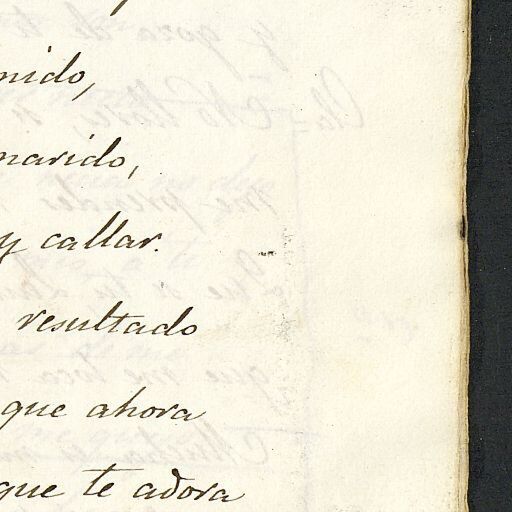 nido,
marido,
y callar.
resultado
que ahora
que te adora